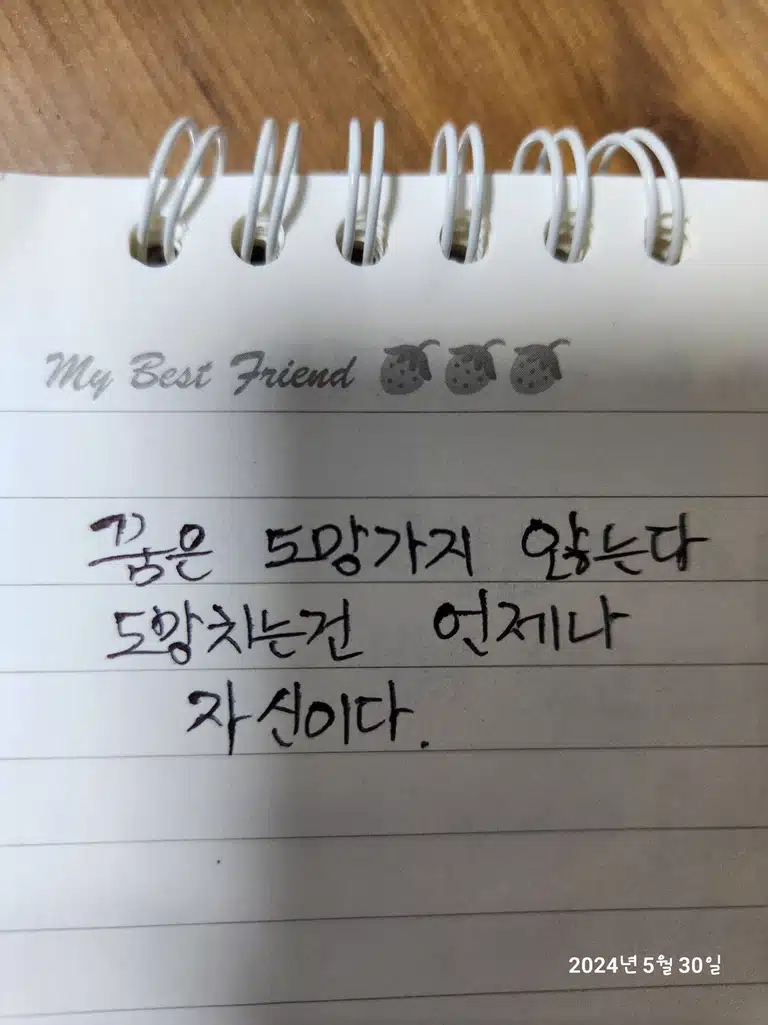 My Best Friend
꿈은 도망가지 않는다
도망치는건 언제나
자신이다.
2024년 5월 30일